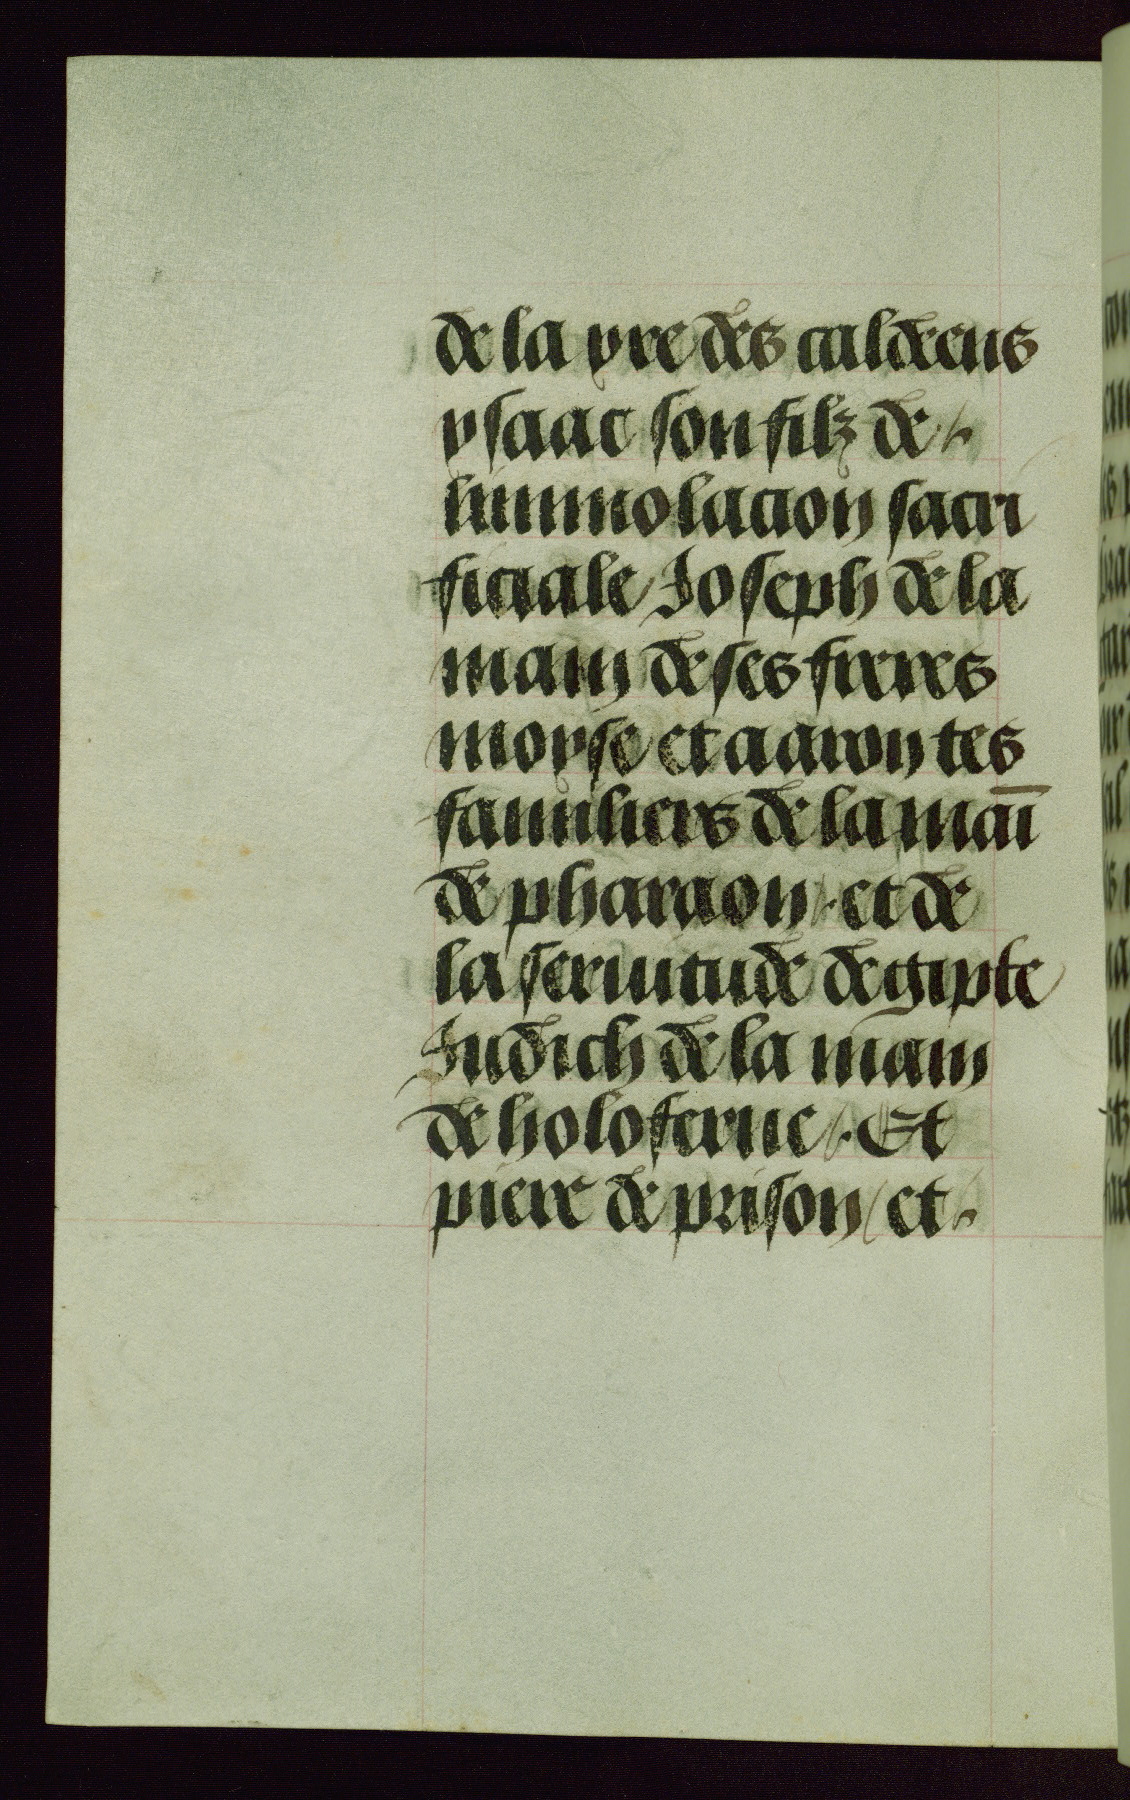 de la yre des caldeens
ysaac son filz de
limmolacion sacri
ficiale Joseph de la
main de ses freres
moyse et aaron tes
familiers de la maī
de pharaon. et de
la seruitude degipte
Judich de la main
de holoferne /. Et
piere de prison / et